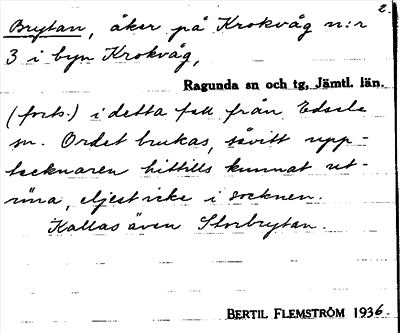 2.
Brytan, åker på Krokvåg n:r
3 i byn Krokvåg,
Ragunda sn och tg, Jämtl. län.
(forts.) i detta fall från Edsele
sn. Ordet brukas, såvitt upp-
tecknaren hittills kunnat ut-
röna, eljest icke i socknen.
Kallas även Storbrytan.
BERTIL FLEMSTRÖM 1936.